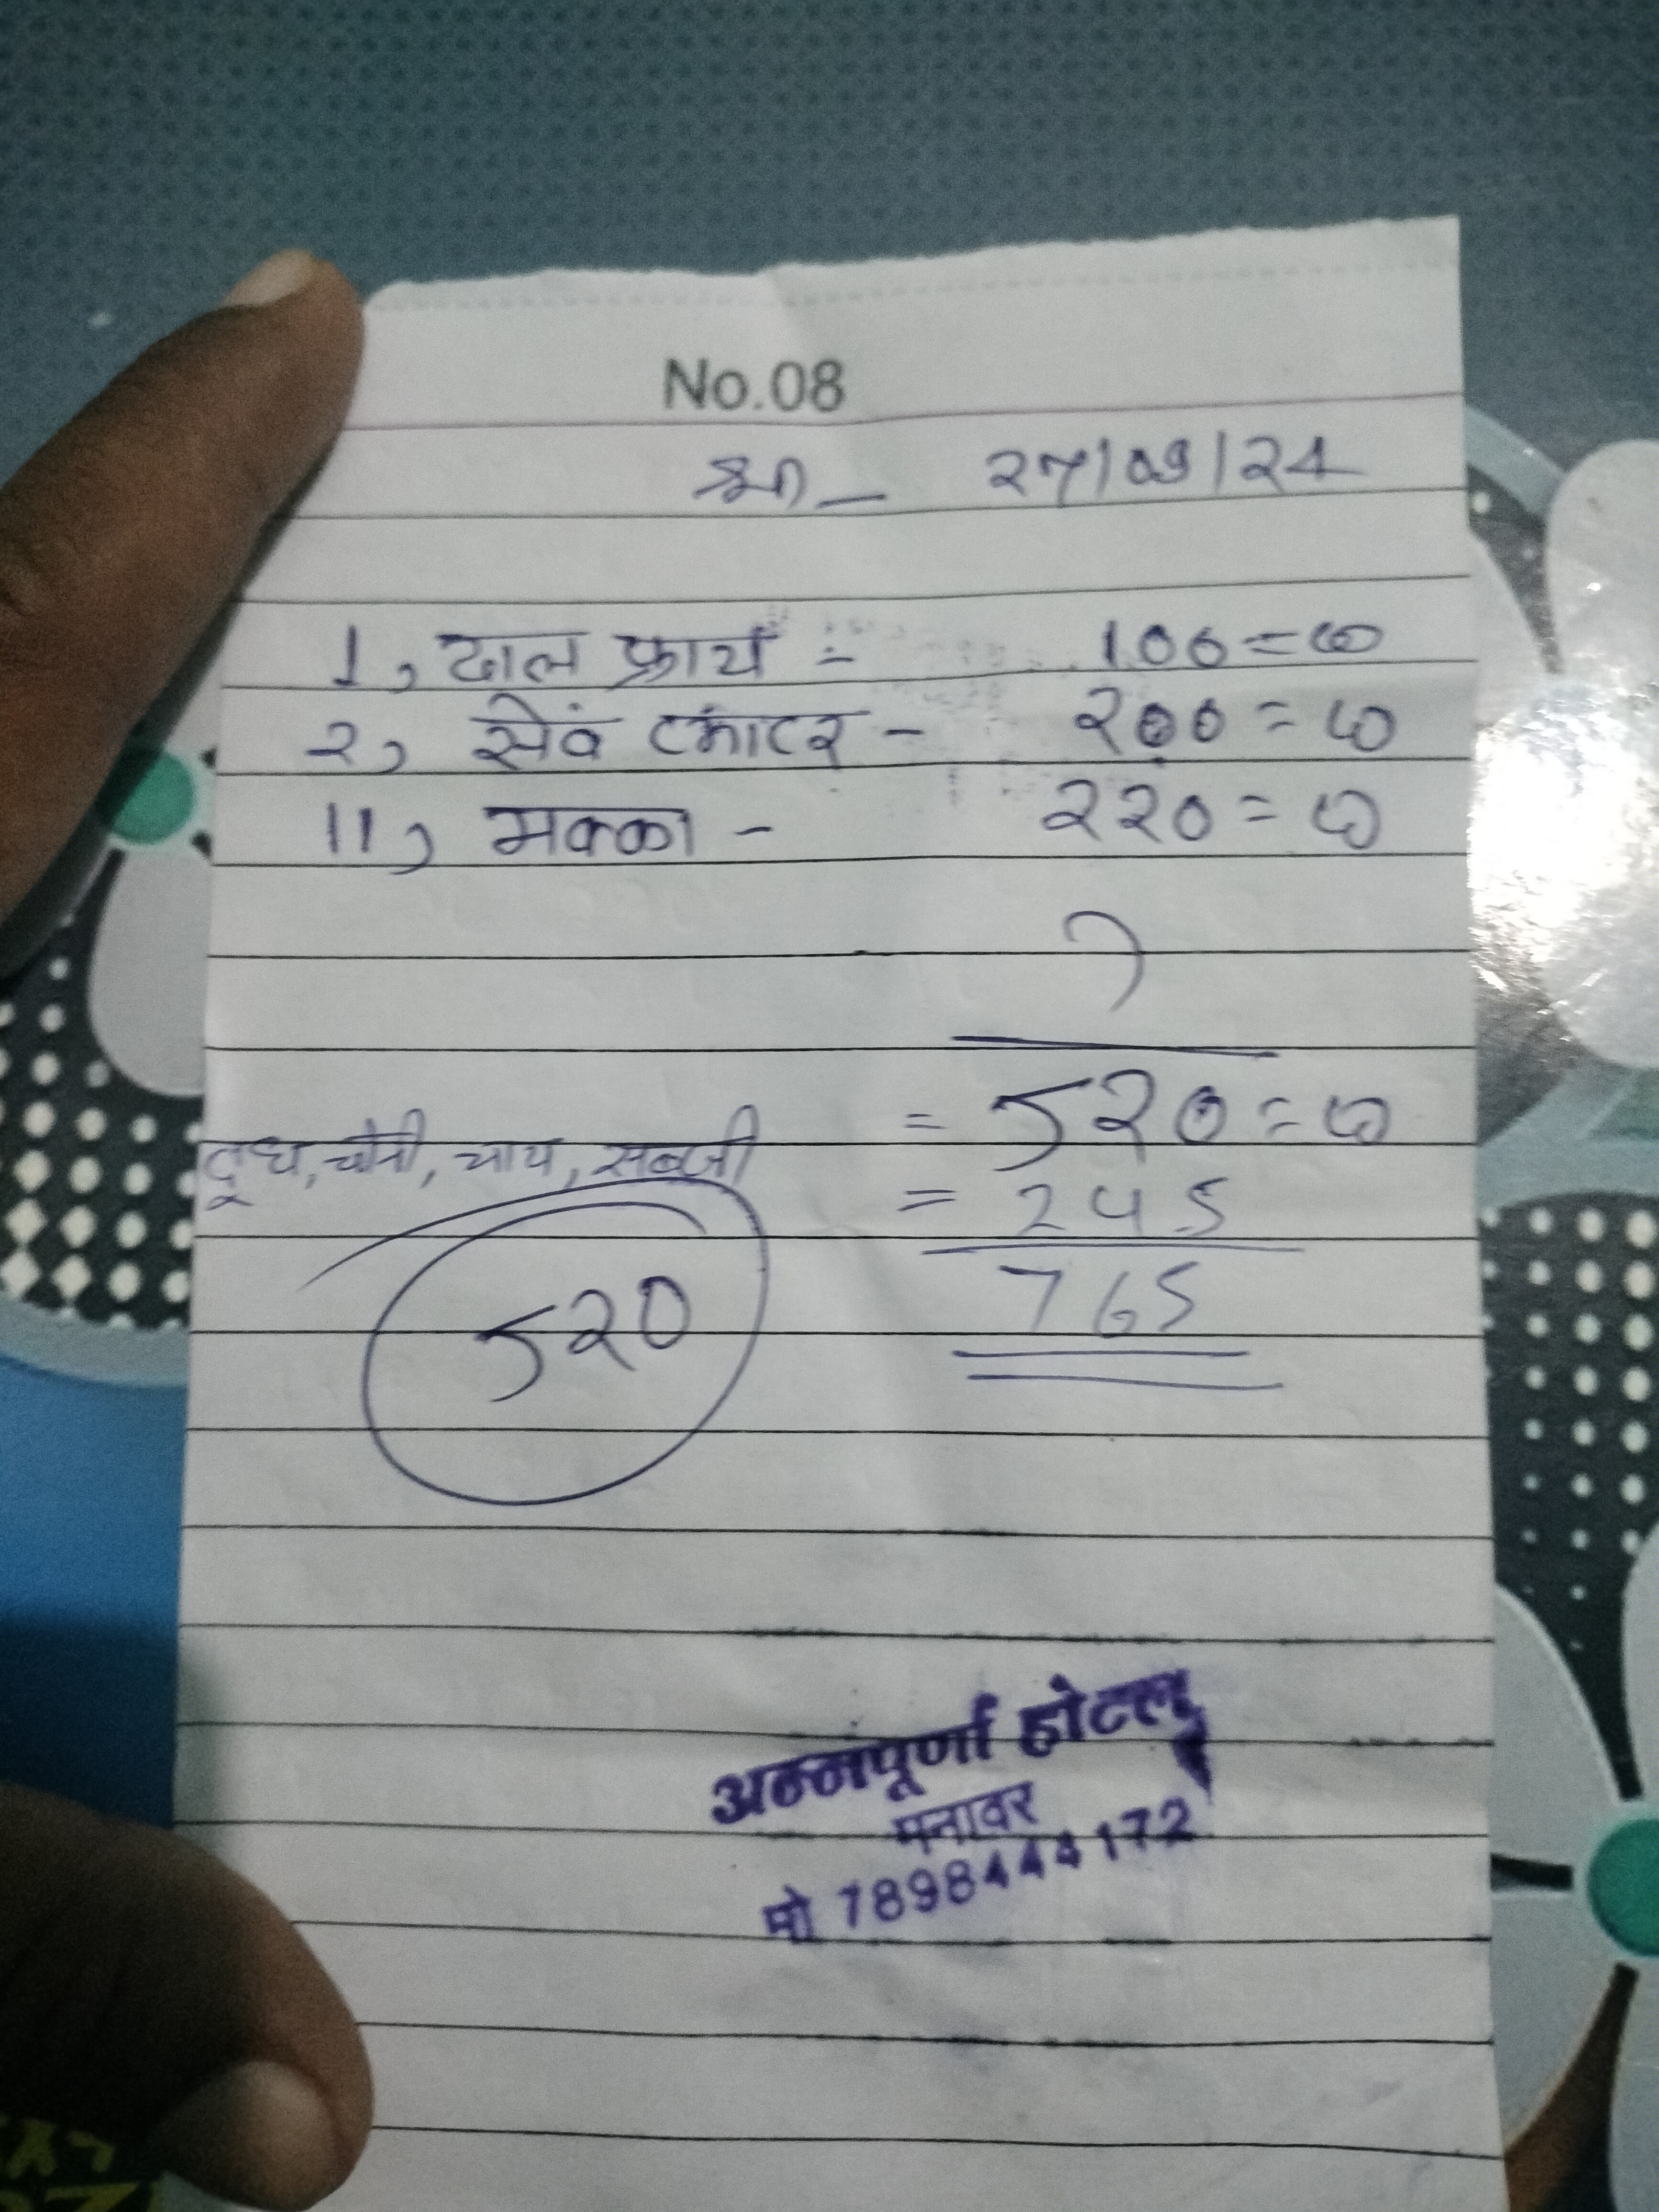 No.08
श्री — 27/09/24
1, दाल फ्राय = 100=00
2, सेवं टमाटर - 200=00
11, मक्का - 220=00
= 520=00
दूध, चीनी, चाय, सब्जी
= 245
520
765
अन्नपूर्णा होटल
मनावर
मो 7898444172